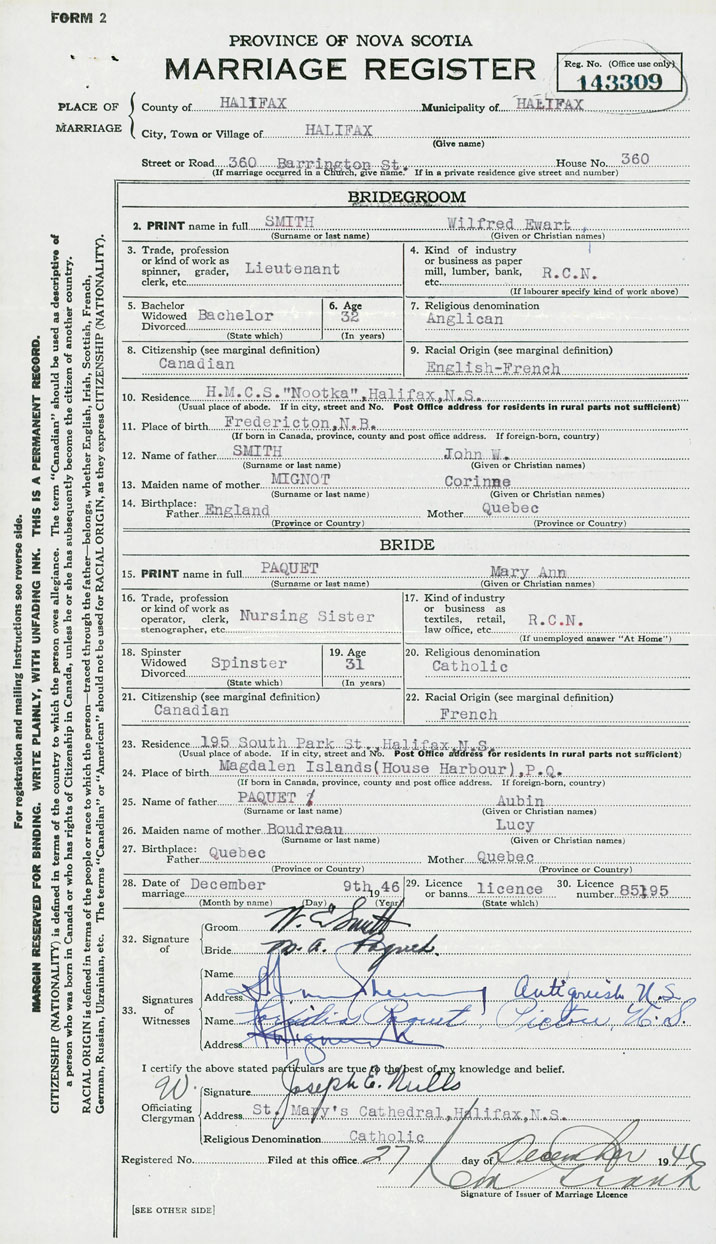 FORM 2
PROVINCE OF NOVA SCOTIA
MARRIAGE REGISTER
Reg. No. (Office use only)
143309
PLACE OF MARRIAGE
County of HALIFAX Municipality of HALIFAX
City, Town or Village of HALIFAX
(Give name)
Street or Road 360 Barrington St. House No. 360
(If marriage occurred in a Church, give name. If in a private residence give street and number)
BRIDEGROOM
2. PRINT name in full SMITH Wilfred Ewart
(Surname or last name) (Given or Christian names)
3. Trade, profession or kind of work as spinner, grader, clerk, etc. Lieutenant
4. Kind of industry or business as paper mill, lumber, bank, etc. R.C.N.
(If labourer specify kind of work above)
5. Bachelor Widowed Divorced Bachelor
(State which)
6. Age 32
(In years)
7. Religious denomination
Anglican
8. Citizenship (see marginal definition)
Canadian
9. Racial Origin (see marginal definition)
English-French
10. Residence H.M.C.S."Nootka",Halifax,N.S.
(Usual place of abode. If in city, street and No. Post Office address for residents in rural parts not sufficient)
11. Place of birth Fredericton,N.B.
(If born in Canada, province, county and post office address. If foreign-born, country)
12. Name of father SMITH John W.
(Surname or last name) (Given or Christian names)
13. Maiden name of mother MIGNOT Corinne
(Surname or last name) (Given or Christian names)
14. Birthplace: Father England Mother Quebec
(Province or Country) (Province or Country)
BRIDE
15. PRINT name in full PAQUET Mary Ann
(Surname or last name) (Given or Christian names)
16. Trade, profession or kind of work as operator, clerk, stenographer, etc. Nursing Sister
17. Kind of industry or business as textiles, retail, law office, etc. R.C.N.
(If unemployed answer "At Home")
18. Spinster Widowed Divorced Spinster
(State which)
19. Age 31
(In years)
20. Religious denomination
Catholic
21. Citizenship (see marginal definition)
Canadian
22. Racial Origin (see marginal definition)
French
23. Residence 195 South Park St., Halifax,N.S.
(Usual place of abode. If in city, street and No. Post Office address for residents in rural parts not sufficient)
24. Place of birth Magdalen Islands(House Harbour),P.Q.
(If born in Canada, province, county and post office address. If foreign-born, country)
25. Name of father PAQUET Aubin
(Surname or last name) (Given or Christian names)
26. Maiden name of mother Boudreau Lucy
(Surname or last name) (Given or Christian names)
27. Birthplace: Father Quebec Mother Quebec
(Province or Country) (Province or Country)
28. Date of marriage December 9th 1946
(Month by name) (Day) (Year)
29. Licence or banns licence
(State which)
30. Licence number 85195
32. Signature of
Groom W. E Smith
Bride M. A. Paquet.
33. Signatures of Witnesses
Name
Address Antigonish N.S.
Name Paquet, Pictou N.S.
Address
I certify the above stated particulars are true to the best of my knowledge and belief.
Officiating Clergyman
Signature Joseph E. Mills
Address St. Mary's Cathedral,Halifax,N.S.
Religious Denomination Catholic
Registered No. Filed at this office 27 day of December 1946
Signature of Issuer of Marriage Licence
[SEE OTHER SIDE]
For registration and mailing instructions see reverse side.
MARGIN RESERVED FOR BINDING. WRITE PLAINLY, WITH UNFADING INK. THIS IS A PERMANENT RECORD.
CITIZENSHIP (NATIONALITY) is defined in terms of the country to which the person owes allegiance. The term "Canadian" should be used as descriptive of
a person who was born in Canada or who has rights of Citizenship in Canada, unless he or she has subsequently become the citizen of another country.
RACIAL ORIGIN is defined in terms of the people or race to which the person—traced through the father—belongs, whether English, Irish, Scottish, French,
German, Russian, Ukrainian, etc. The terms "Canadian" or "American" should not be used for RACIAL ORIGIN, as they express CITIZENSHIP (NATIONALITY).